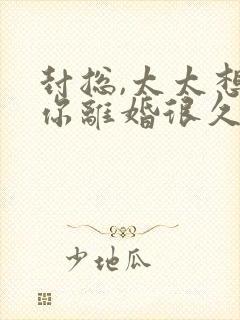 封总,太太想
你離婚很久
少地瓜